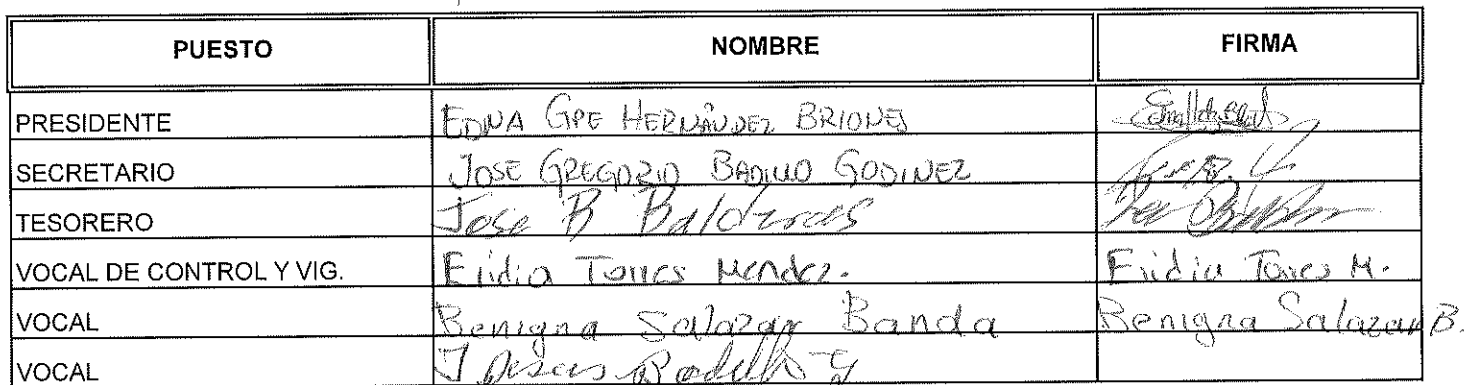 PUESTO NOMBRE FIRMA
PRESIDENTE EDNA GPE HERNÁNDEZ BRIONES
SECRETARIO JOSE GREGORIO BADILLO GODINEZ
TESORERO Jose B Balderas
VOCAL DE CONTROL Y VIG. Eridia Torres Mendez. Eridia Torres M.
VOCAL Benigna Salazar Banda Benigna Salazar B.
VOCAL J